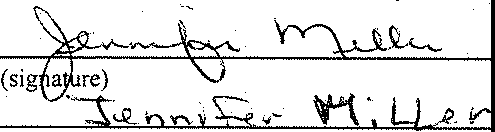 Jennifer Miller
(signature)
Jennifer Miller